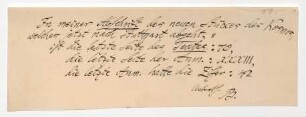 In meiner Abschrift des neuen Druckes der Normen
welcher jetzt nach Stuttgart abgeht,
ist die letzte Seite des Textes: 70,
die letzte Seite der Anm.: XXXIII,
die letzte Anm. hatte die Ziffer: 42